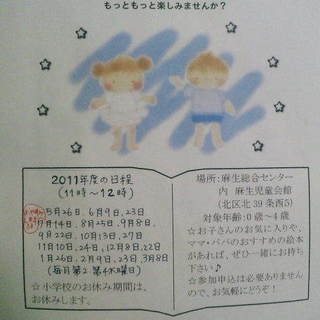 もっともっと楽しみませんか?
2011年度の日程
(11時~12時)
5月26日, 6月9日, 23日
7月14日, 8月25日, 9月8日,
9月22日, 10月13日, 27日
11月10日, 24日, 12月8日, 22日
1月26日, 2月9日, 23日, 3月8日
(毎月第2 第4木曜日)
☆小学校のお休み期間は、
お休みします。
場所:麻生総合センター
内 麻生児童会館
(北区北39条西5)
対象年齢:0歳~4歳
☆お子さんのお気に入りや、
ママ・パパのおすすめの絵本
があれば、ぜひ一緒にお持ち
下さい♪
☆参加申込は必要ありません
ので、お気軽にどうぞ!